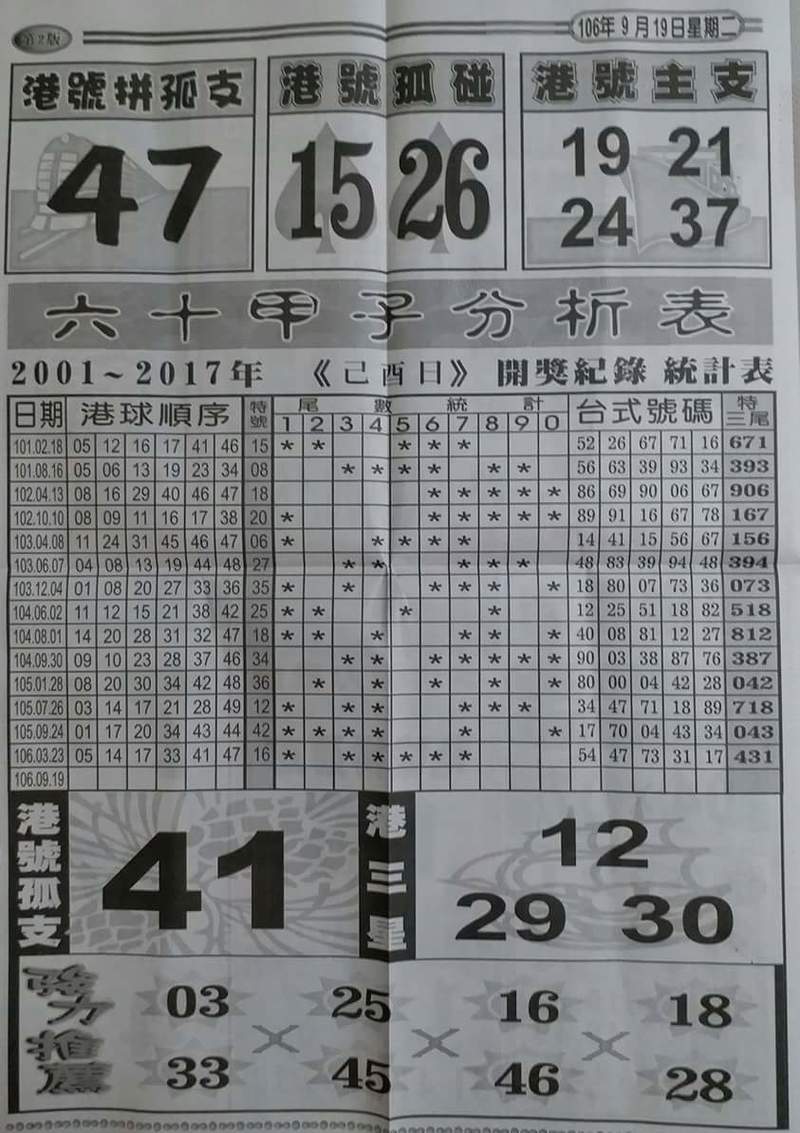 第2版
106年9月19日星期二
港號拼孤支 港號孤碰 港號主支
47 15 26 19 21
24 37
六十甲子分析表
2001~2017年 《己酉日》 開獎紀錄 統計表
日期 港球順序 特號 尾數統計 台式號碼 特三尾
1 2 3 4 5 6 7 8 9 0
101.02.18 05 12 16 17 41 46 15 * * * * * 52 26 67 71 16 671
101.08.16 05 06 13 19 23 34 08 * * * * * * 56 63 39 93 34 393
102.04.13 08 16 29 40 46 47 18 * * * * * 86 69 90 06 67 906
102.10.10 08 09 11 16 17 38 20 * * * * * * 89 91 16 67 78 167
103.04.08 11 24 31 45 46 47 06 * * * * * 14 41 15 56 67 156
103.06.07 04 08 13 19 44 48 27 * * * * * 48 83 39 94 48 394
103.12.04 01 08 20 27 33 36 35 * * * * * * 18 80 07 73 36 073
104.06.02 11 12 15 21 38 42 25 * * * * 12 25 51 18 82 518
104.08.01 14 20 28 31 32 47 18 * * * * * * 40 08 81 12 27 812
104.09.30 09 10 23 28 37 46 34 * * * * * * * 90 03 38 87 76 387
105.01.28 08 20 30 34 42 48 36 * * * * * 80 00 04 42 28 042
105.07.26 03 14 17 21 28 49 12 * * * * * * 34 47 71 18 89 718
105.09.24 01 17 20 34 43 44 42 * * * * * * 17 70 04 43 34 043
106.03.23 05 14 17 33 41 47 16 * * * * * * 54 47 73 31 17 431
106.09.19
港號孤支 41 港三星 12
29 30
強力推薦
03 25 16 18
× × ×
33 45 46 28